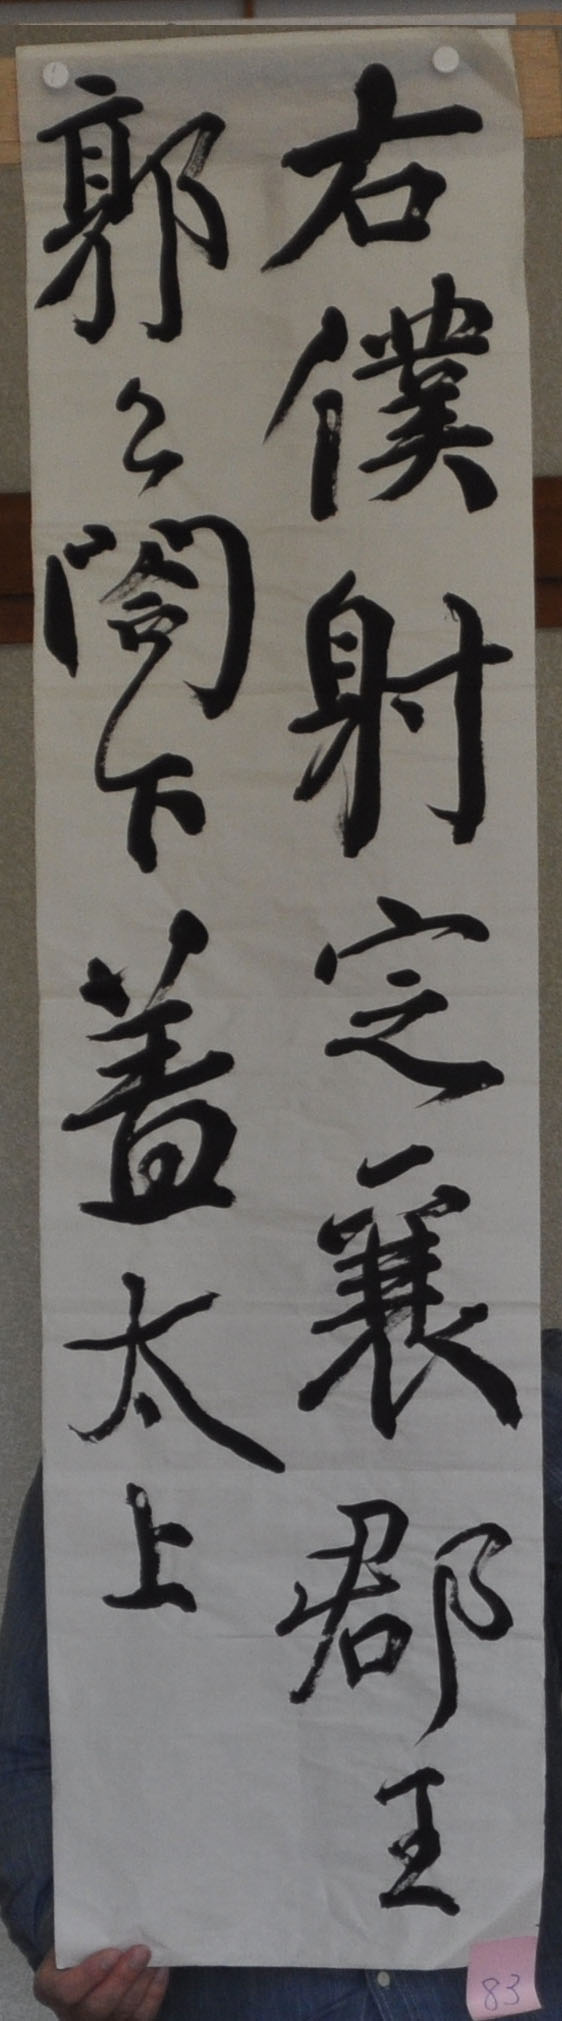 右僕射定襄郡王
郭公閤下蓋太上
83